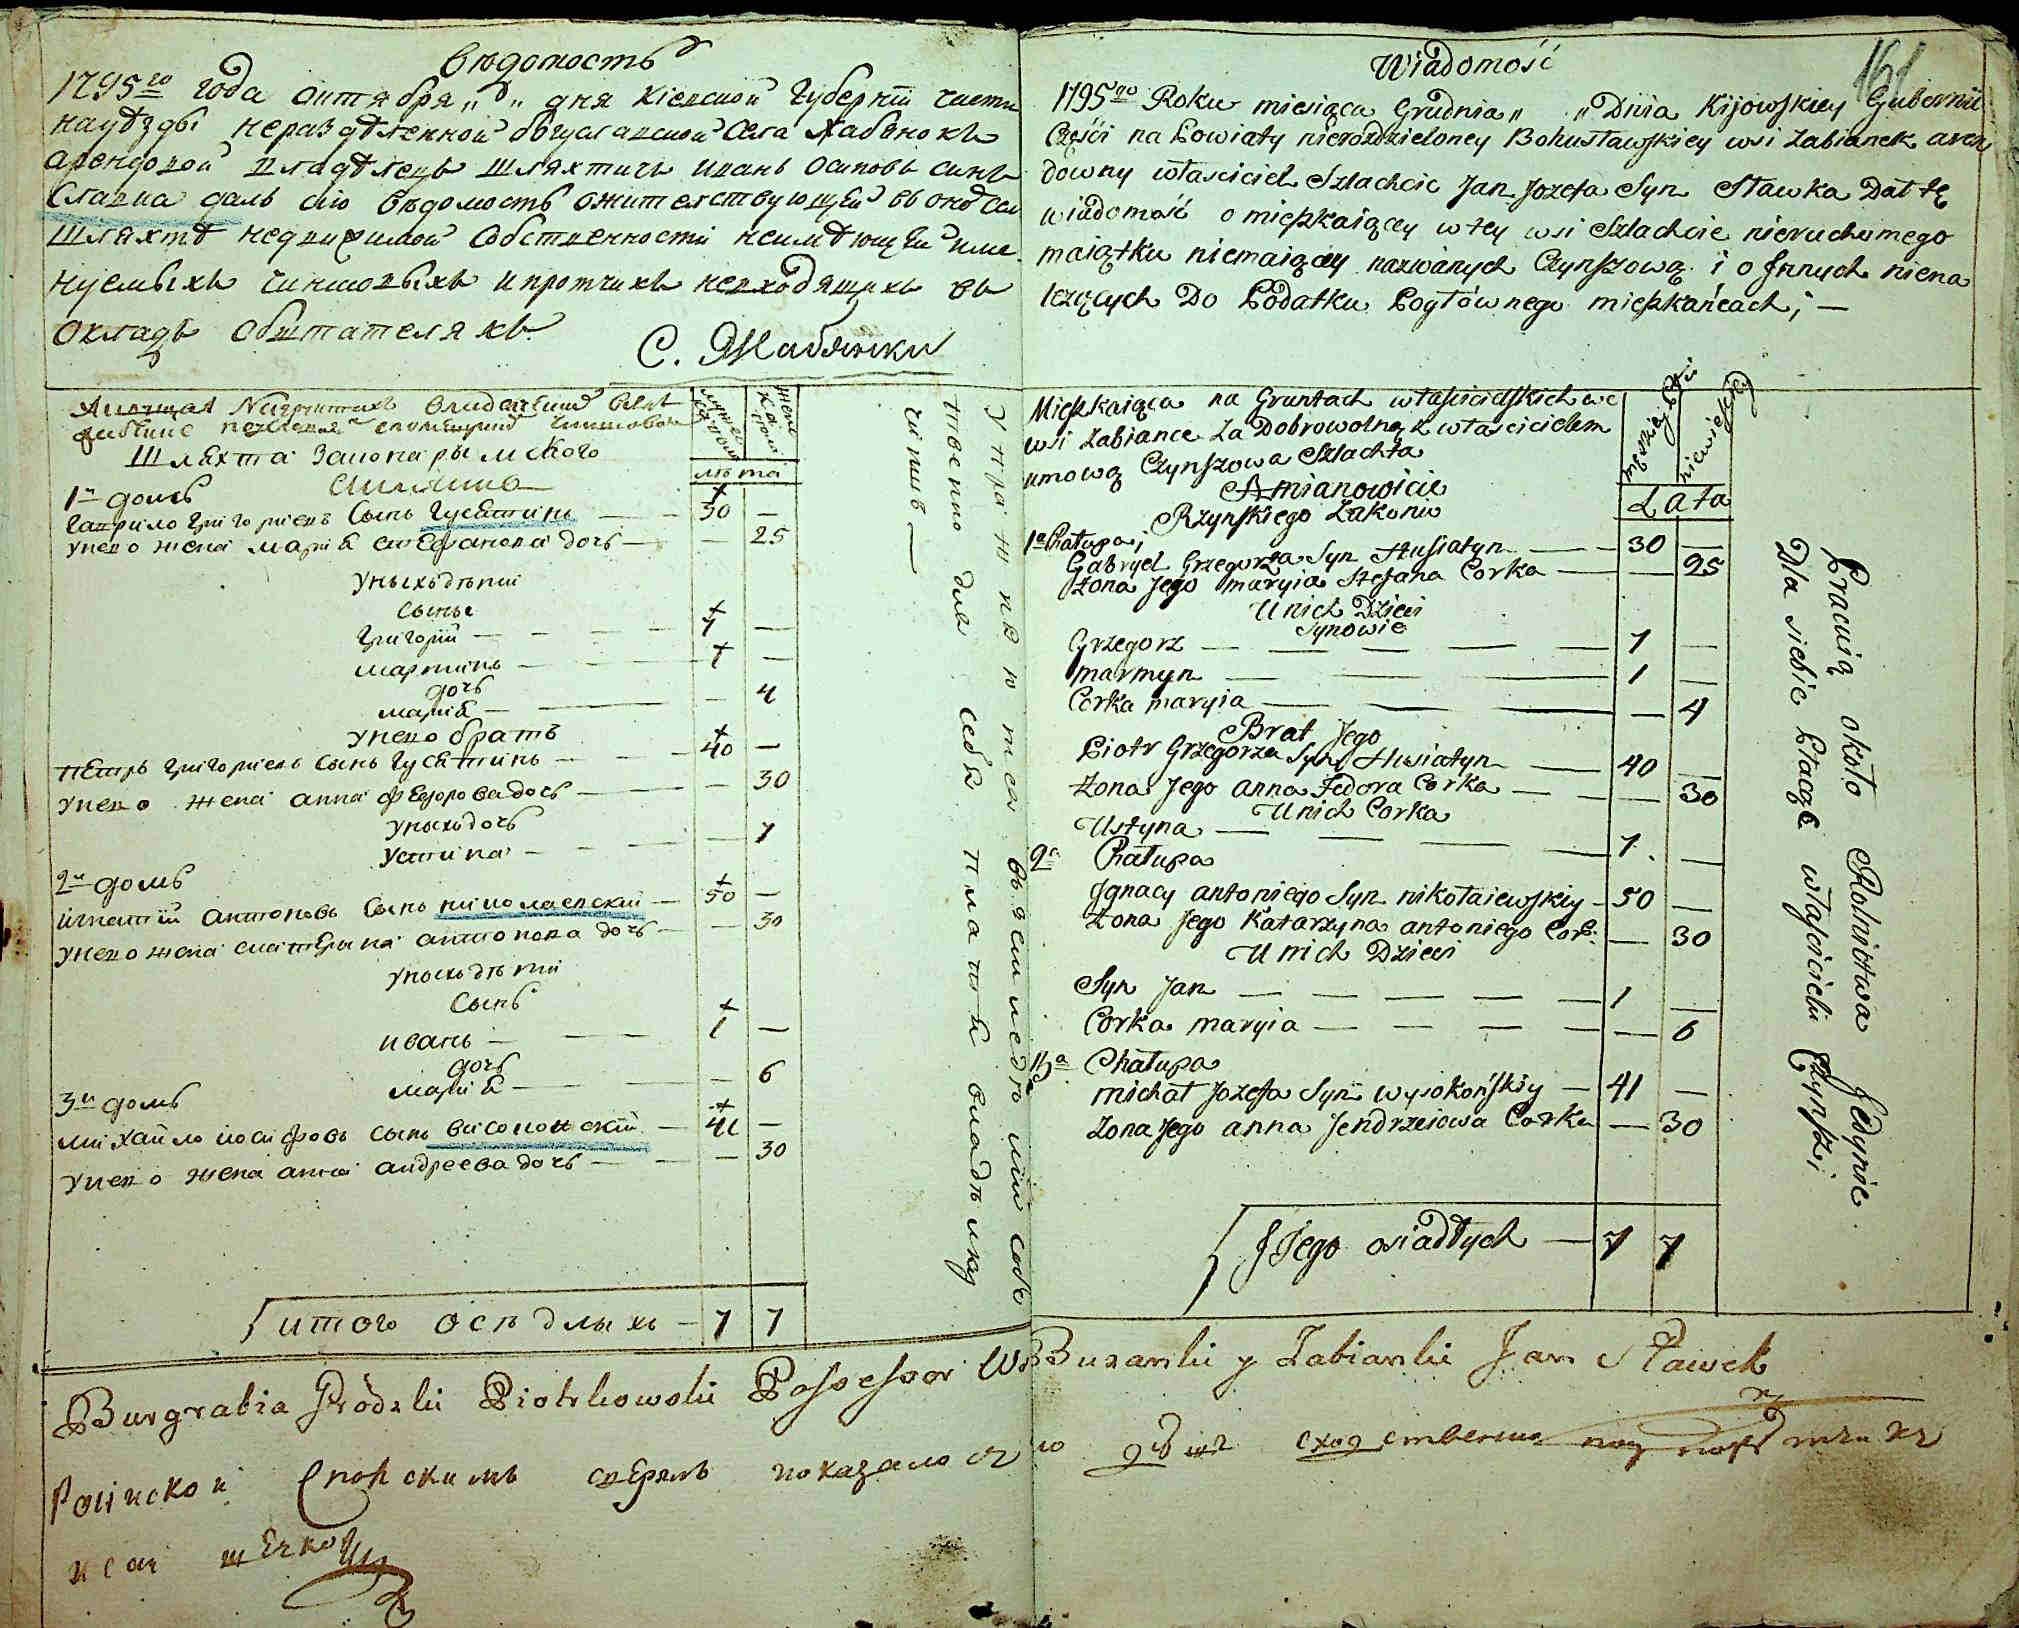 Вѣдомость
1795го года октября „ „ дня Кіевской Губерніи части
науѣзды нераздѣленной Богуславской села Жабянокъ
арендовой владѣлецъ шляхтичъ Иванъ Осиповъ синъ
Славка далъ сію вѣдомость ожителствующей въ оной селѣ
шляхтѣ недвижимой собственности неимѣющей име
нуемыхъ чиншовыхъ и протчихъ невходящихъ въ
окладъ обитателяхъ.
С. Жабянки
Шляхта Закона рымского
лѣта
1й домъ
Гаврило Григориевъ сынъ Гусятинъ — 30 —
унего жена Марія Стефанова дочь — — 25
унихъ дѣти
сыны
Григорій — 7 —
Мартинъ — 1 —
дочь
Марія — — 4
унего братъ
Петръ Григориевъ сынъ Гусятинъ — 40 —
унего жена Анна Федорова дочь — — 30
унихъ дочь
Устина — — 7
2й домъ
Игнатій Антоновъ сынъ Николаевскій — 50 —
унего жена Катерина Антонова дочь — — 30
унихъ дѣти
сынъ
Иванъ — 1 —
дочь
Марія — — 6
3й домъ
Михайло Иосифовъ сынъ Високонскій — 41 —
унего жена Анна Андреева дочь — — 30
итого осѣдлыхъ — 7 7
для себя платя владѣлцу
чиншъ —
Wiadomość
161
1795go Roku miesiąca Grudnia „ „ Dnia Kijowskiey Gubernii
Części na Powiaty nierozdzieloney Bohusławskiey wsi Zabianek aren
downy własciciel Szlachcic Jan Jozefa Syn Sławka Dał tę
wiadomość o mieszkaiącey w tey wsi Szlachcie nieruchomego
maiątku niemaiącey nazwanych Czynszową i o Jnnych niena
leżących Do Podatku Pogłównego mieszkańcach; —
Mieszkaiąca na Gruntach własścicielskich we
wsi Zabiance Za Dobrowolną z włascicielem
umową Czynszowa Szlachta
A mianowicie
Rzynskiego Zakonu
Lata
1a Chałupa;
Gabryel Grzegorza Syn Husiatyn — 30 —
Żona Jego Maryia Stefana Corka — — 25
U nich Dzieci
Synowie
Grzegorz — 7 —
Marmyn — 1 —
Corka Maryia — — 4
Brat Jego
Piotr Grzegorza Syn Husiatyn — 40 —
Żona Jego Anna Fedora Corka — — 30
U nich Corka
Ustyna — 7. —
2a Chałupa
Jgnacy Antoniego Syn Nikołaiewskiy — 50 —
Żona Jego Katarzyna Antoniego Cor: — 30
U nich Dzieci
Syn Jan — 1 —
Corka Maryia — — 6
3a Chałupa
Michał Jozefa Syn Wysokońskiy — 41 —
Zona Jego Anna Jendrzeiowa Corka — 30
Jtego osiadłych — 7 7
Pracuią około Rolnictwa Jedynie
Dla siebie Płacąc właścicielu Czynsz;
Burgrabia Grodzki Piotrkowski Possessor Wsi Buzanki y Zabianki Jan Sławek